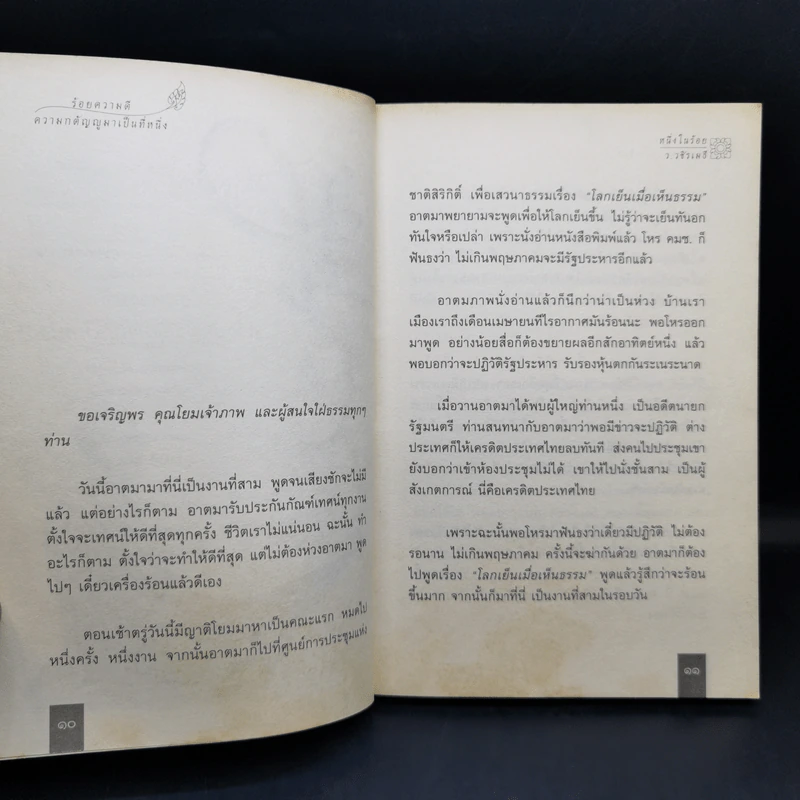 ร้อยความดี
ความกตัญญูมาเป็นที่หนึ่ง
ขอเจริญพร คุณโยมเจ้าภาพ และผู้สนใจใฝ่ธรรมทุกๆ
ท่าน
วันนี้อาตมามาที่นี่เป็นงานที่สาม พูดจนเสียงชักจะไม่มี
แล้ว แต่อย่างไรก็ตาม อาตมารับประกันกัณฑ์เทศน์ทุกงาน
ตั้งใจจะเทศน์ให้ดีที่สุดทุกครั้ง ชีวิตเราไม่แน่นอน ฉะนั้น ทำ
อะไรก็ตาม ตั้งใจว่าจะทำให้ดีที่สุด แต่ไม่ต้องห่วงอาตมา พูด
ไปๆ เดี๋ยวเครื่องร้อนแล้วดีเอง
ตอนเช้าตรู่วันนี้มีญาติโยมมาหาเป็นคณะแรก หมดไป
หนึ่งครั้ง หนึ่งงาน จากนั้นอาตมาก็ไปที่ศูนย์การประชุมแห่ง
๑๐
หนึ่งในร้อย
ว.วชิรเมธี
ชาติสิริกิติ์ เพื่อเสวนาธรรมเรื่อง “โลกเย็นเมื่อเห็นธรรม”
อาตมาพยายามจะพูดเพื่อให้โลกเย็นขึ้น ไม่รู้ว่าจะเย็นทันอก
ทันใจหรือเปล่า เพราะนั่งอ่านหนังสือพิมพ์แล้ว โหร คมช. ก็
ฟันธงว่า ไม่เกินพฤษภาคมจะมีรัฐประหารอีกแล้ว
อาตมภาพนั่งอ่านแล้วก็นึกว่าน่าเป็นห่วง บ้านเรา
เมืองเราถึงเดือนเมษายนทีไรอากาศมันร้อนนะ พอโหรออก
มาพูด อย่างน้อยสื่อก็ต้องขยายผลอีกสักอาทิตย์หนึ่ง แล้ว
พอบอกว่าจะปฏิวัติรัฐประหาร รับรองหุ้นตกกันระเนระนาด
เมื่อวานอาตมาได้พบผู้ใหญ่ท่านหนึ่ง เป็นอดีตนายก
รัฐมนตรี ท่านสนทนากับอาตมาว่าพอมีข่าวจะปฏิวัติ ต่าง
ประเทศก็ให้เครดิตประเทศไทยลบทันที ส่งคนไปประชุมเขา
ยังบอกว่าเข้าห้องประชุมไม่ได้ เขาให้ไปนั่งชั้นสาม เป็นผู้
สังเกตการณ์ นี่คือเครดิตประเทศไทย
เพราะฉะนั้นพอโหรมาฟันธงว่าเดี๋ยวมีปฏิวัติ ไม่ต้อง
รอนาน ไม่เกินพฤษภาคม ครั้งนี้จะฆ่ากันด้วย อาตมาก็ต้อง
ไปพูดเรื่อง “โลกเย็นเมื่อเห็นธรรม” พูดแล้วรู้สึกว่าจะร้อน
ขึ้นมาก จากนั้นก็มาที่นี่ เป็นงานที่สามในรอบวัน
๑๑